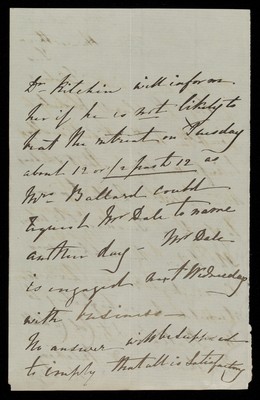 Dr Kitchin will inform
her if he is not likely to
beat the retreat on Tuesday
about 12 or ½ past 12 as
Mrs Ballard could
request Mr Dale to name
another day - Mr Dale
is engaged next Wednesday
with business
No answer will be supposed
to imply that all is satisfactory